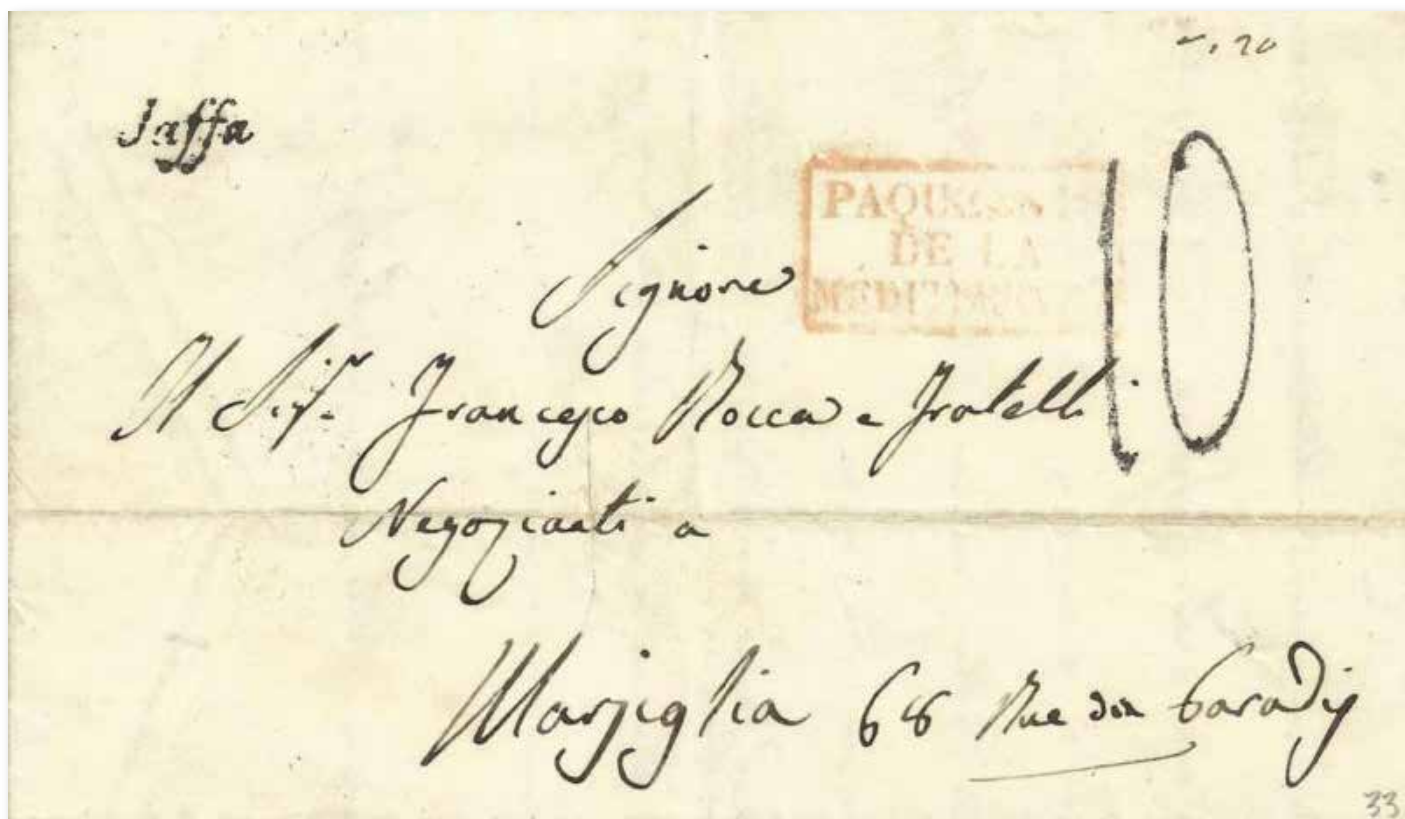 20
Jaffa
PAQUEBOTS
DE LA
MÉDITERRA
10
Signore
Il Sigr. Francesco Rocca e fratelli
Negozianti a
Marsiglia 68 Rue Paradis
33